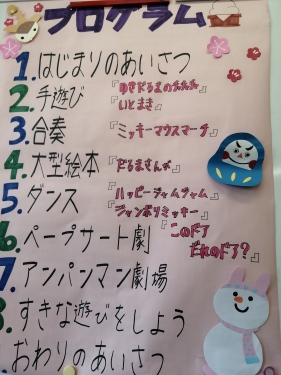 プログラム
1.はじまりのあいさつ
2.手遊び 『ゆきだるまのチャチャチャ』
『いとまき』
3.合奏 『ミッキーマウスマーチ』
4.大型絵本 『だるまさんが』
5.ダンス 『ハッピージャムジャム』
『ジャンボリミッキー』
6.ペープサート劇 『このドア だれのドア?』
7.アンパンマン劇場
8.すきな遊びをしよう
.おわりのあいさつ